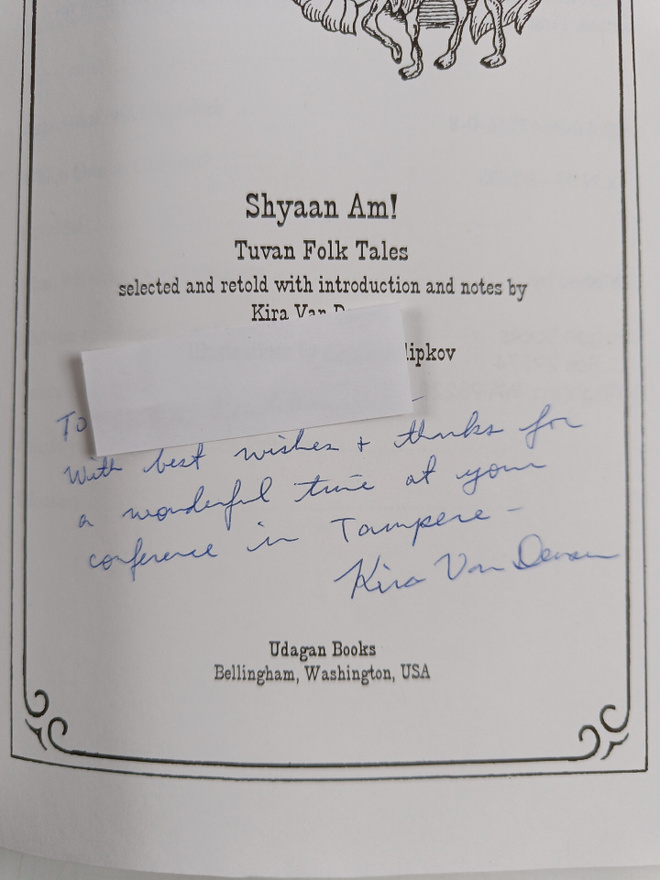 Shyaan Am!
Tuvan Folk Tales
selected and retold with introduction and notes by
Kira Van
lipkov
To
With best wishes + thanks for
a wonderful time at your
conference in Tampere -
Kira Van Deusen
Udagan Books
Bellingham, Washington, USA